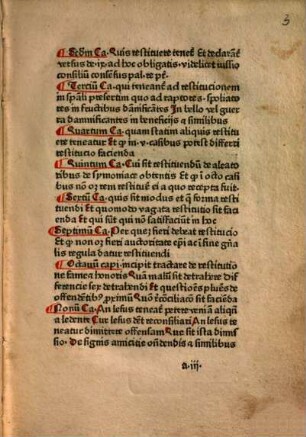 3
¶ Scḋm Ca. Quis restituere teneat̃ Et declarant̃
versus de .ix. ad hoc obligatis .videlicet iussio
consiliũ consensus pal. te pr̃.
¶ Terciũ Ca. qui teneant̃ ad restitucionem
in sp̃ali presertim quo ad raptores. spoliato
res in fructibus dãnificãtes In bello vel guer
ra damnificantes in beneficijs ⁊ similibus
¶ Quartum Ca. quam statim aliquis restitu
ere teneatur Et ꝙ in .v. casibus potest differri
restitucio facienda
¶ Quintum Ca. Cui sit restituendũ de aleato
ribus de symoniace obtentis Et ꝙ ĩ octo casi
bus nõ oꝫ rem restitui ei a quo recepta fuit
¶ Sextũ Ca. quis sit modus et q̃ forma resti
tuendi Et quomodo vagata restitucio sit fac
enda Et qui sãt qui nõ satisfaciũt in hoc
¶ Septimũ Ca. Per quẽ fieri debeat restitucio
et ꝙ non oꝫ fieri auctoritate ep̃i ac ĩ fine gña
lis regula datur restituendi
¶ Octauũ capi. incipit tractare de restitutio
ne fame ⁊ honoris Quã mali sit detrahere Dif
ferencie seu detrahendi Et questiões pl̃res de
offendẽtibꝰ primũ Quõ recõciliacõ sit faciẽda
¶ Nonũ Ca. An lesus teneat̃ petere veniã aliqñ
a ledente Cur lesus deat̃ reconsiliari An lesus te
neatur dimittere offensam Que sit ista dimis
sio. De signis amicicie oñdendis ⁊ similibus
a .iij.